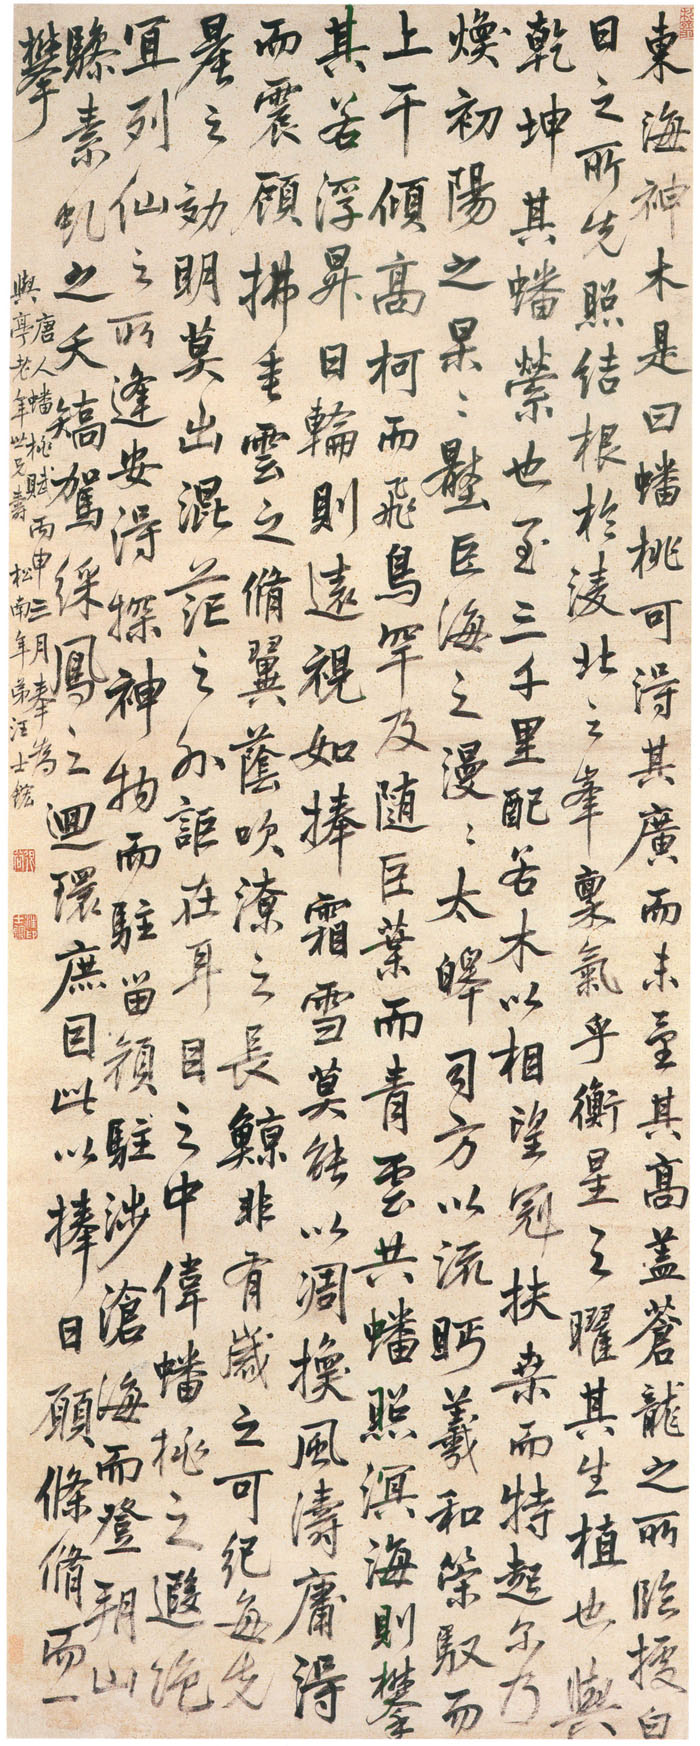 東海神木是曰蟠桃可得其廣而未量其高蓋蒼龍之所臨擾白
日之所先照結根於淩北之峯稟氣乎衡星之曜其生植也與
乾坤其蟠縈也至三千里配若木以相望冠扶桑而特起尔乃
煥初陽之杲〻壓巨海之漫〻太皥司方以流眄羲和策馭而
上干傾高柯而飛鳥罕及随巨葉而青雲共蟠照溟海則攀
其若浮昇日輪則遠視如捧霜雪莫能以凋換風濤庸得
而震顧拂垂雲之脩翼蔭吹潦之長鯨非有歲之可紀每先
星之効明莫出混茫之外詎在耳目之中偉蟠桃之遐絶
宜列仙之所逢安得探神物而駐留領駐涉滄海而登朔山
驂素虬之夭矯駕綵鳳之迴環庶因此以捧日願條脩而一
攀
唐人蟠桃賦丙申三月奉為
與亭老年世兄壽 松南年弟汪士鋐